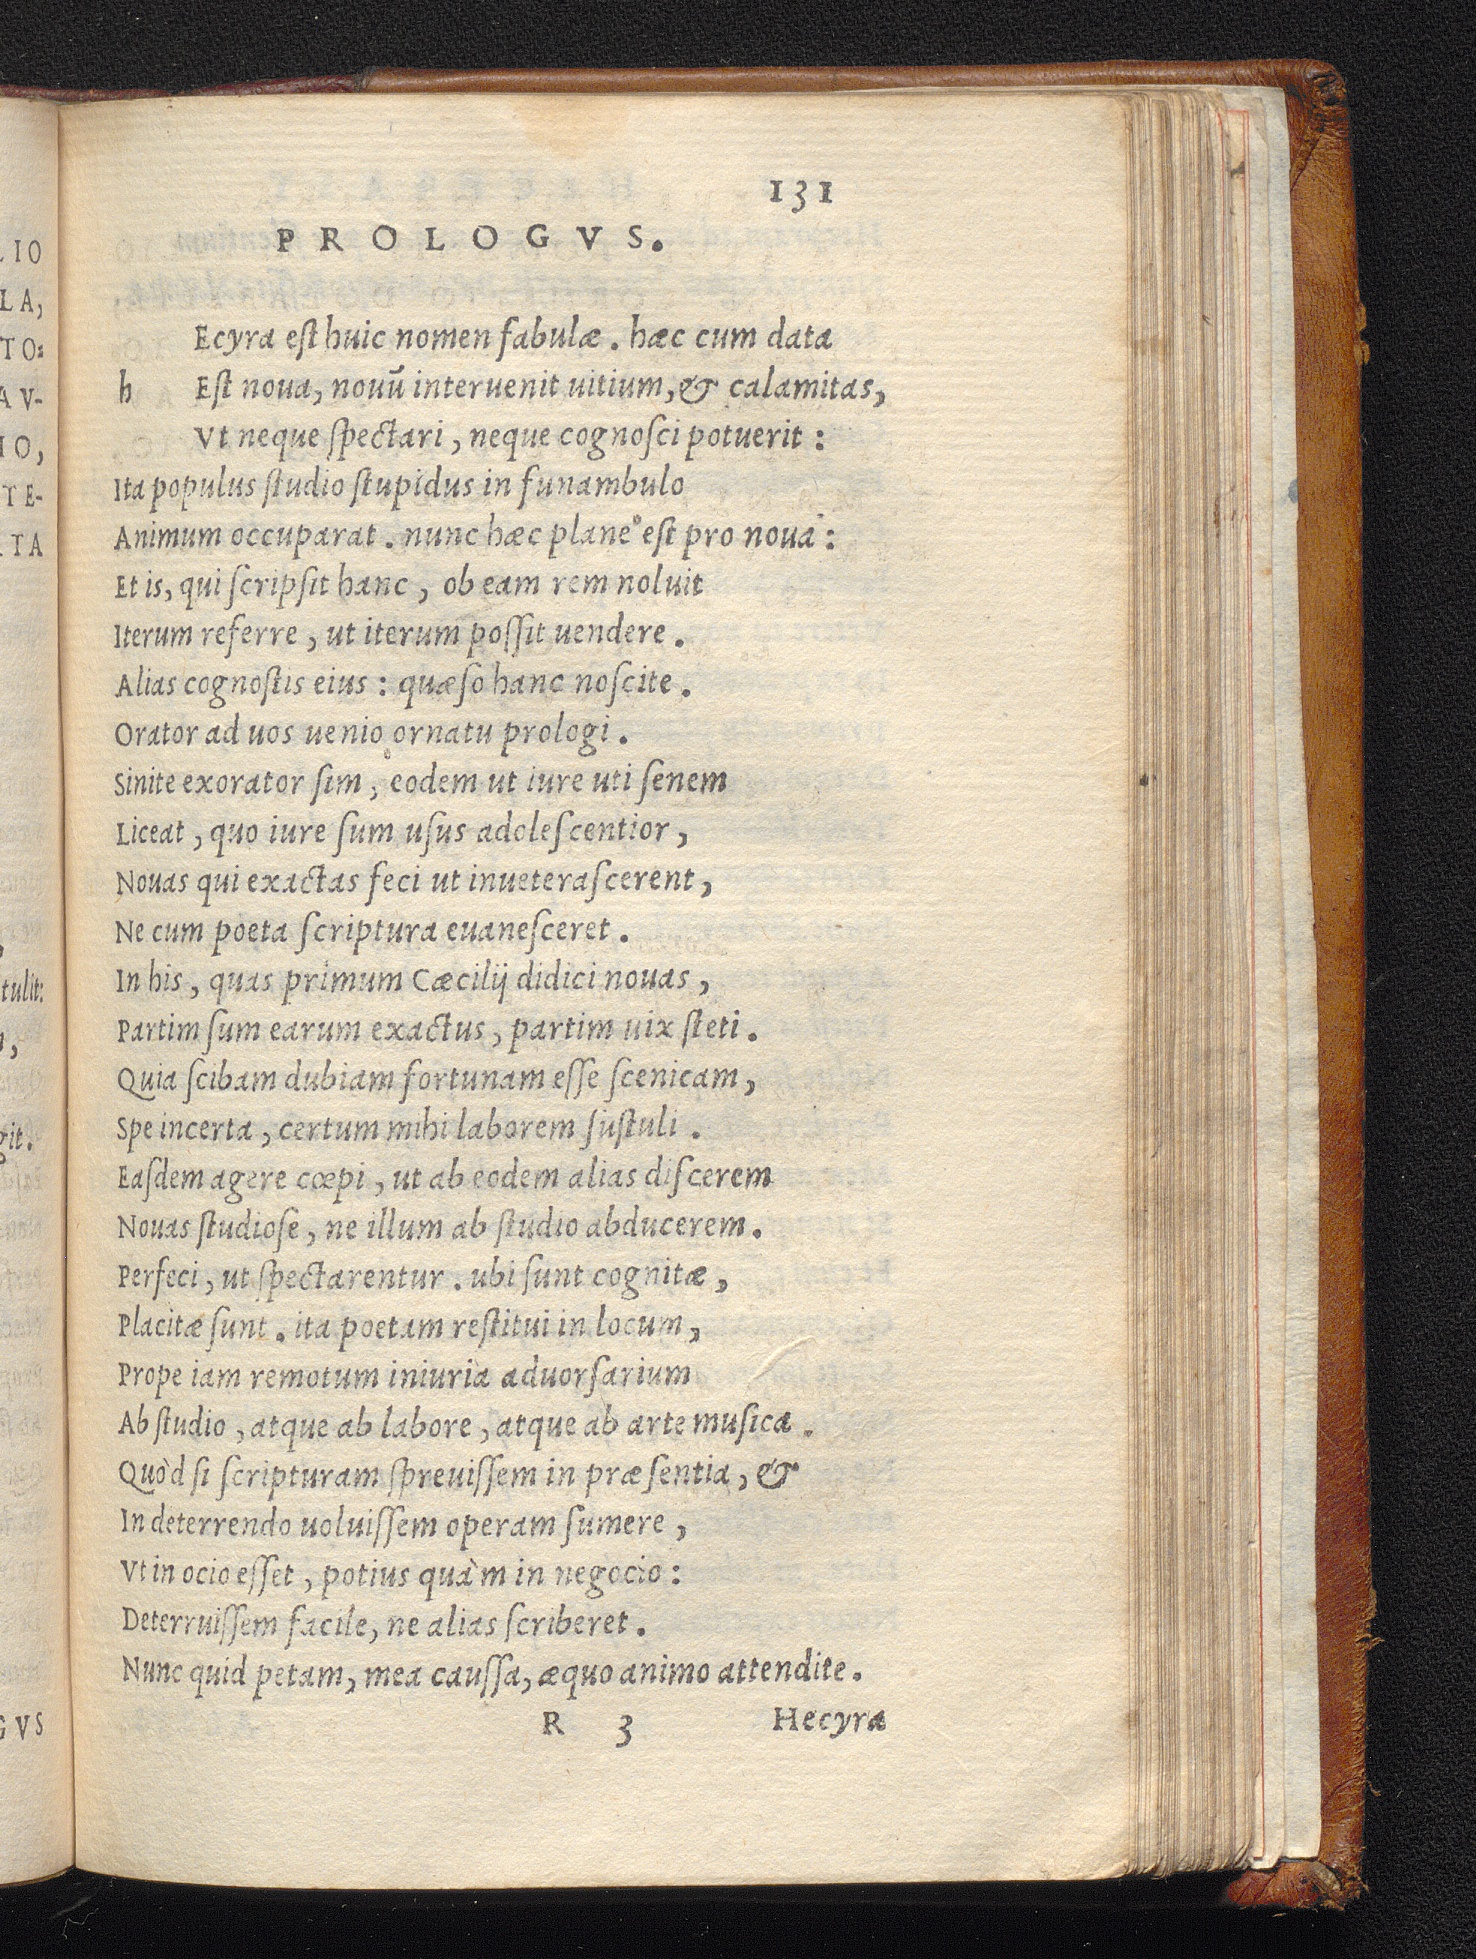 131
PROLOGVS.
Ecyra eſt huic nomen fabulæ. hæc cum data
h Eſt noua, nouū interuenit uitium, & calamitas,
Vt neque ſpectari, neque cognoſci potuerit:
Ita populus ſtudio ſtupidus in funambulo
Animum occuparat. nunc hæc plane eſt pro noua:
Et is, qui ſcripſit hanc, ob eam rem noluit
Iterum referre, ut iterum poſſit uendere.
Alias cognoſtis eius: quæſo hanc noſcite.
Orator ad uos uenio ornatu prologi.
Sinite exorator ſim, eodem ut iure uti ſenem
Liceat, quo iure ſum uſus adoleſcentior,
Nouas qui exactas feci ut inueteraſcerent,
Ne cum poeta ſcriptura euaneſceret.
In his, quas primum Cæcilij didici nouas,
Partim ſum earum exactus, partim uix ſteti.
Quia ſcibam dubiam fortunam eſſe ſcenicam,
Spe incerta, certum mihi laborem ſuſtuli.
Eaſdem agere cœpi, ut ab eodem alias diſcerem
Nouas ſtudioſe, ne illum ab ſtudio abducerem.
Perfeci, ut ſpectarentur. ubi ſunt cognitæ,
Placitæ ſunt. ita poetam reſtitui in locum,
Prope iam remotum iniuria aduorſarium
Ab ſtudio, atque ab labore, atque ab arte muſica.
Quòd ſi ſcripturam ſpreuiſſem in præſentia, &
In deterrendo uoluiſſem operam ſumere,
Vt in ocio eſſet, potius quàm in negocio:
Deterruiſſem facile, ne alias ſcriberet.
Nunc quid petam, mea cauſſa, æquo animo attendite.
R 3 Hecyra